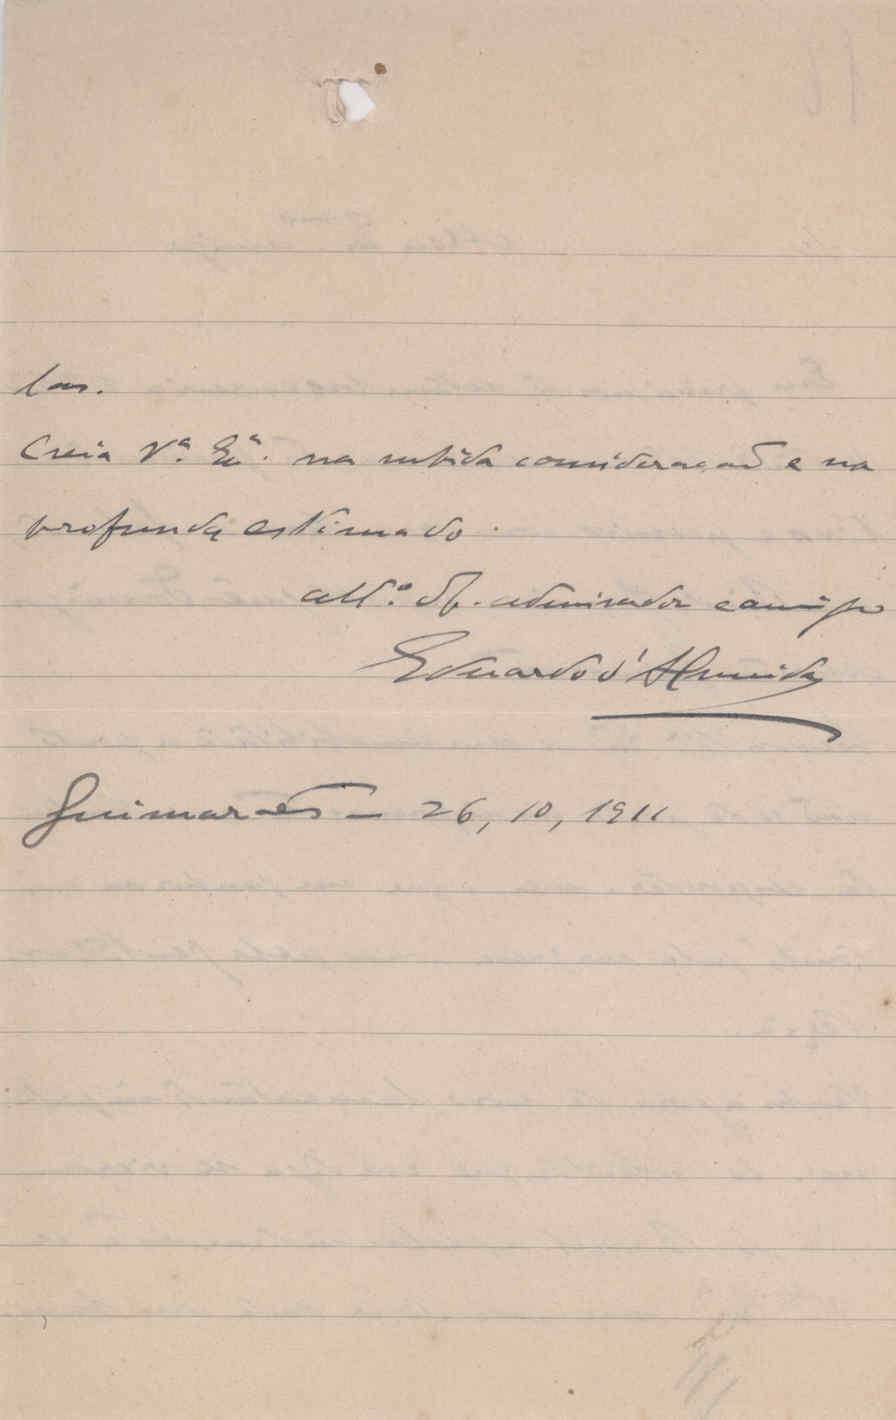 las.
Creia Vª. Exª. na subida consideração e na
profunda estima do
attº. Obr. admirador e amigo
Eduardo d'Almeida
Guimarães – 26, 10, 1911